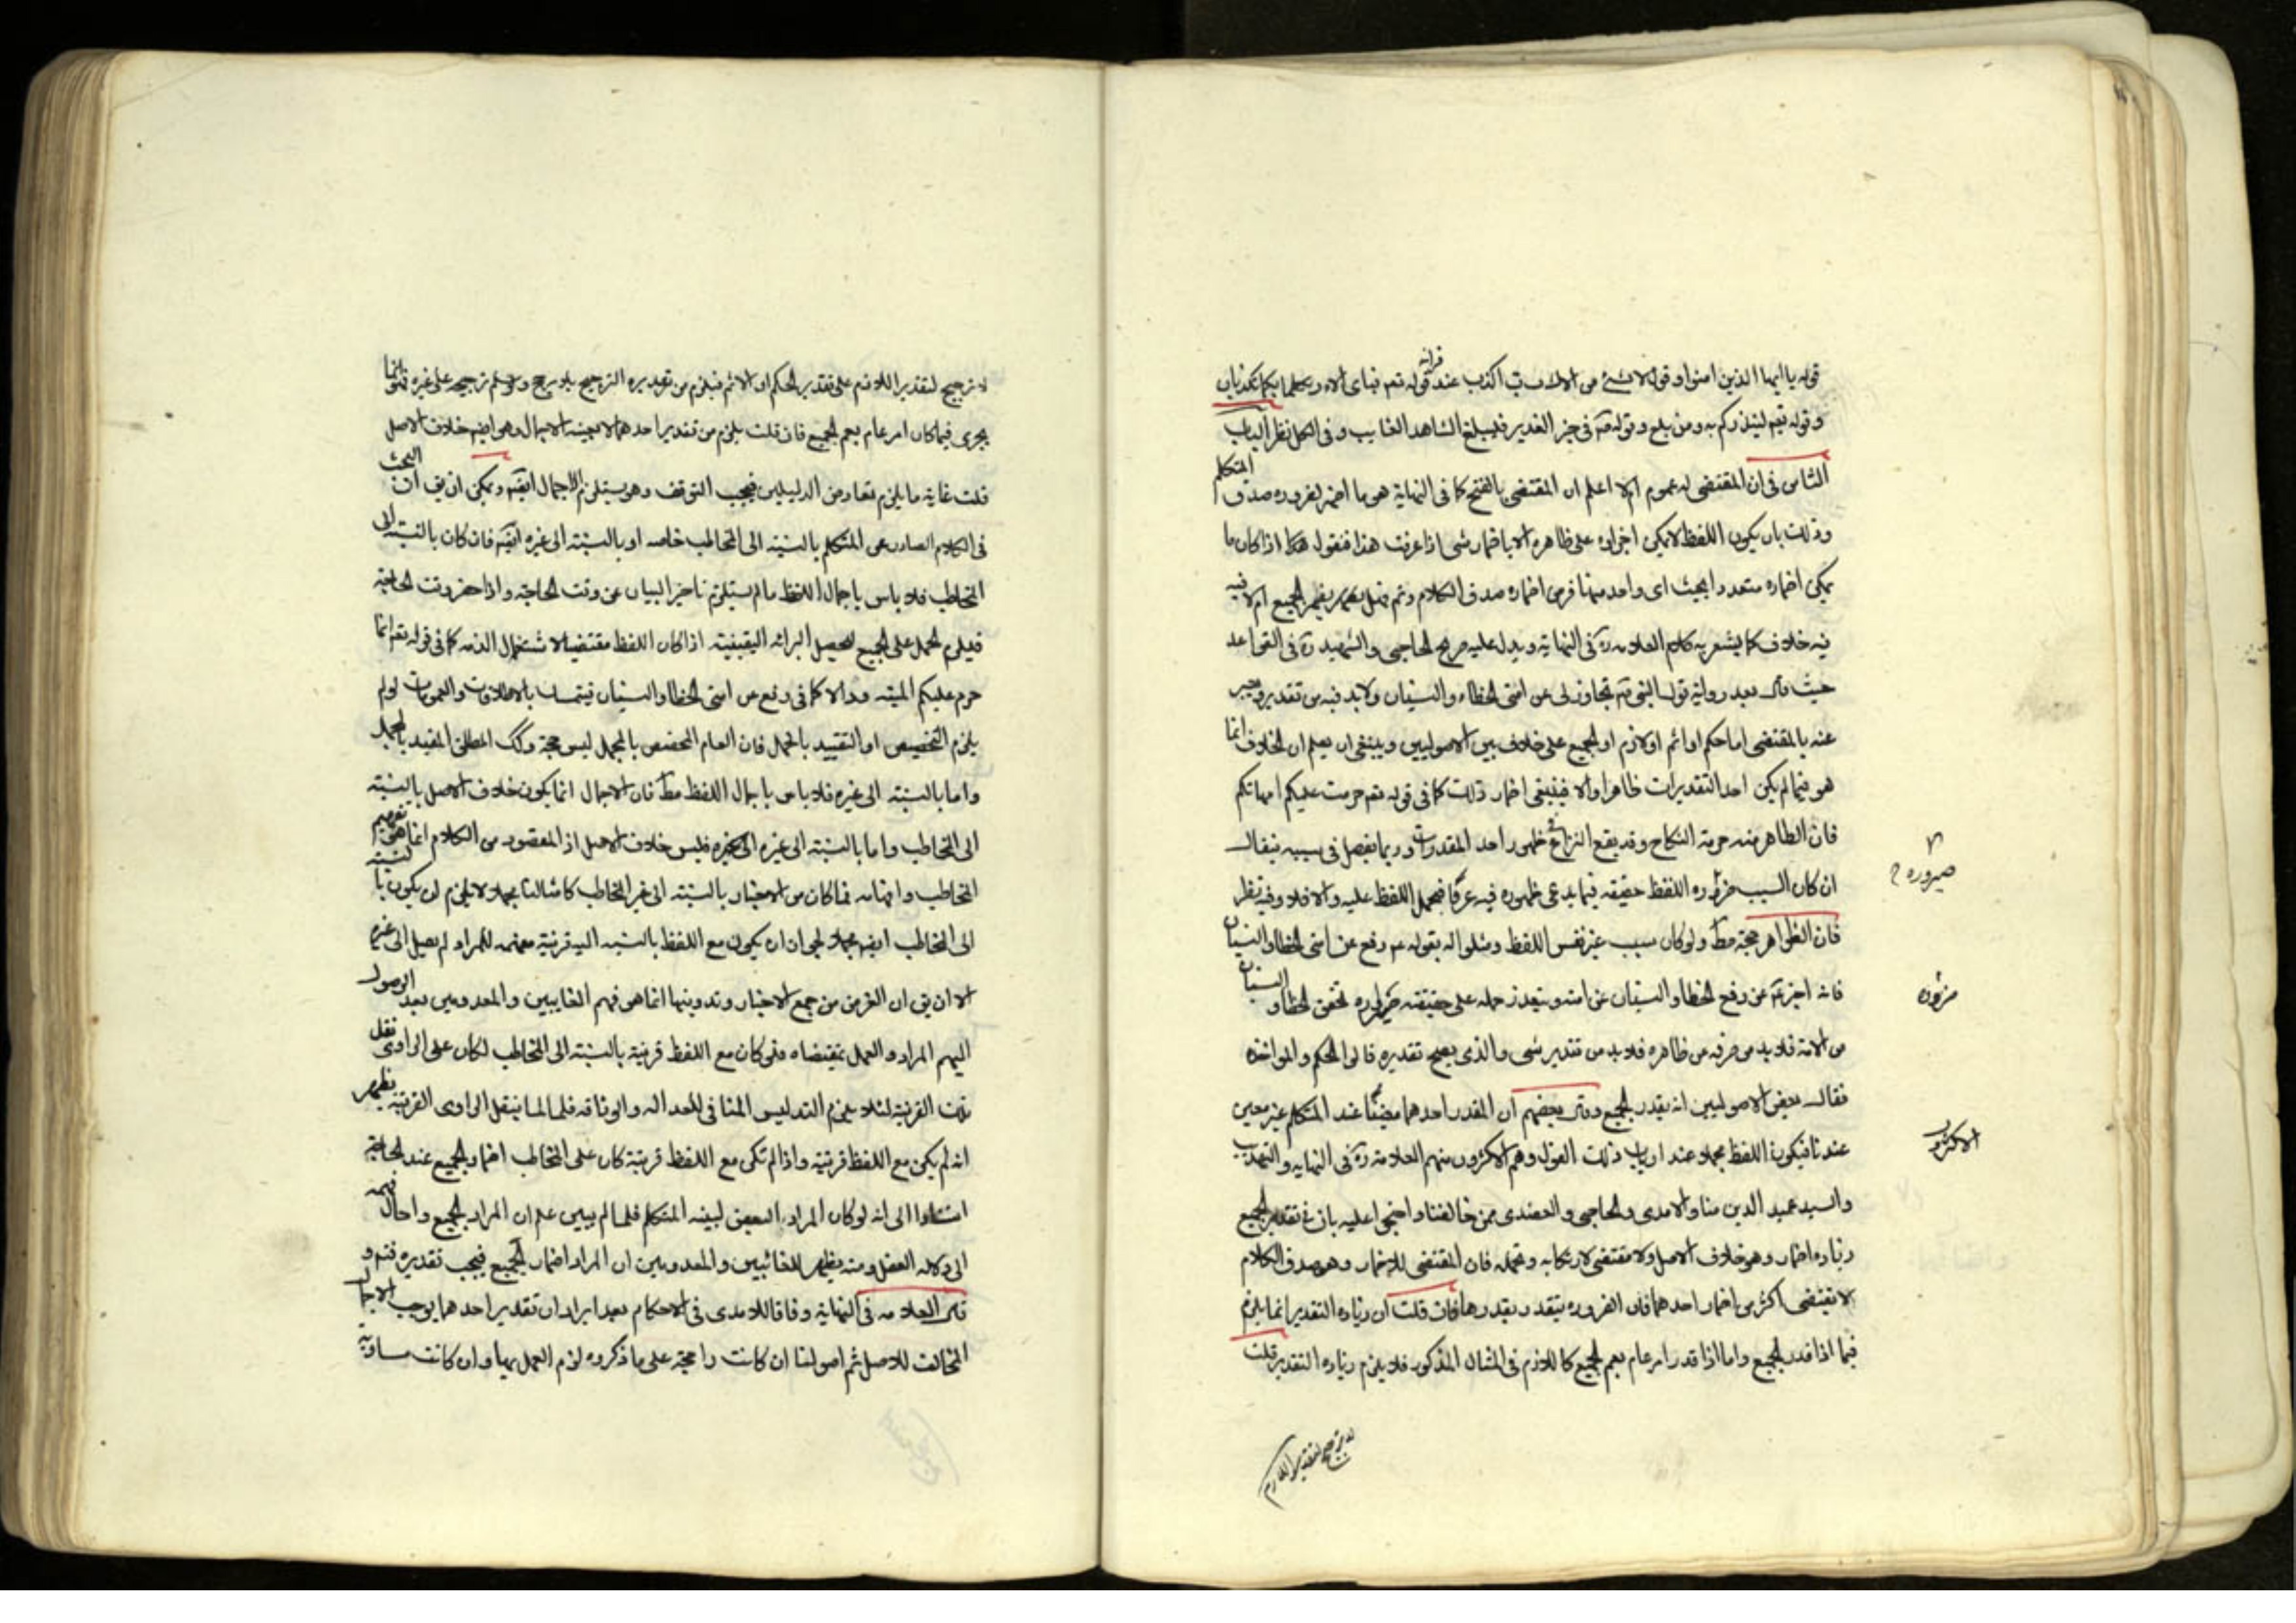 قوله يا ايها الذين امنوا و قوله لا بشئ من الائك رب اكذب عند قرائة قوله تعم فباى الاء ربكما تكذبان
و قوله تعم لينذركم به و من بلغ و قوله ص فى خبر الغدير فليبلغ الشاهد الغايب و فى الكل نظر الباب
الثامن فى ان المقتضى له عموم ام لا اعلم ان المقتضى بالفتح كما فى النهاية هو ما اضمر لضرورة صدق المتكلم
و ذلك بان يكون اللفظ لا يمكن اجراؤه على ظاهره الا باضمار شى اذا عرفت هذا فنقول هكذا اذا كان ما
يمكن اضماره متعددا بحيث اى واحد منها فرض اضماره صدق الكلام و تم فهل يضمر الجميع ام لا فيه
فيه خلاف كما يشعر به كلام العلامة ره فى النهاية و يدل عليه صريح الحاجبى و الشهيد ره فى القواعد
حيث قال بعد رواية قول النبى ص تجاوز لى عن امتى الخطاء و النسيان و لا بد فيه من تقدير و يعبر
عنه بالمقتضى اما حكم او اثم او لازم او الجميع على خلاف بين الاصوليين و ينبغى ان يعلم ان الخلاف انما
هو فيما لم يكن احد التقديرات ظاهرا و الا فينبغى اضمار ذلك كما فى قوله تعم حرمت عليكم امهاتكم
فان الظاهر منه حرمة النكاح و قد يقع النزاع فى ظهور احد المقدرات و ربما يفصل فى سببه فيقال
ان كان السبب صيرورة اللفظ حقيقه فيما يدعى ظهوره فيه عرفا فيحمل اللفظ عليه و الا فلا و فيه نظر
صيرورة
فان الظواهر حجة مط و لو كان بسبب غير نفس اللفظ و مثلوا له بقوله ع رفع عن امتى الخطا و النسيان
فانه اخبر ع عن رفع الخطا و النسيان عن امته و يتعذر حمله على حقيقته ضرورة تحقق الخطا و النسيان
من الامة فلا بد من صرفه من ظاهره فلا بد من تقدير شى و الذى يصح تقديره قالوا الحكم و المواخذه
فقال بعض الاصوليين انه يقدر الجميع و قال بعضهم ان المقدر احدهما معينا عند المتكلم غير معين
عندنا فيكون اللفظ مجملا عند ارباب ذلك القول و هم الاكثرون منهم العلامة ره فى النهايه و التهذيب
الاكثرون
و السيد عميد الدين منا و الامدى و الحاجبى و العضدى ممن خالفنا و احتجوا عليه بان فى تقدير الجميع
زيادة اضمار و هو خلاف الاصل و لا مقتضى لارتكابه و تحمله فان المقتضى للاضمار و هو صدق الكلام
لا يقتضى اكثر من اضمار احدهما فان الضرورة يتقدر بقدرها فان قلت ان زيادة التقدير انما يلزم
فيما اذا قدر الجميع و اما اذا قدر امر عام يعم الجميع كاللازم فى المثال المذكور فلا يلزم زيادة التقدير قلت
لا ترجيح لتقدير اللازم
لا ترجيح لتقدير اللازم على تقدير الحكم او الاثم فيلزم من تقديره الترجيح بلا مرجح و لو سلم ترجيحه على غيره فهو انما
يجرى فيما كان امر عام يعم الجميع فان قلت يلزم من تقدير احدهما لا بعينه الاجمال و هو ايضم خلاف الاصل
قلت غاية ما يلزم تعارض الدليلين فيجب التوقف و هو يستلزم الاجمال ايضم و يمكن ان يق ان البحث
فى الكلام الصادر عن المتكلم بالنسبة الى المخاطب خاصه او بالنسبة الى غيره ايضم فان كان بالنسبة الى
المخاطب فلا باس باجمال اللفظ ما لم يستلزم تاخير البيان عن وقت الحاجة و اذا حضر وقت الحاجة
فيلزم الحمل على الجميع لتحصيل البرائه اليقينية اذا كان اللفظ مقتضيا لاشتغال الذمه كما فى قوله تعم انما
حرم عليكم الميته و الا كما فى رفع عن امتى الخطا و النسيان فيتمسك بالاطلاقات و العمومات لو لم
يلزم التخصيص او التقييد بالمجمل فان العام المخصص بالمجمل ليس حجة و كك المطلق المقيد بالمجمل
و اما بالنسبة الى غيره فلا باس باجمال اللفظ مط فان الاجمال انما يكون خلاف الاصل بالنسبة
الى المخاطب و اما بالنسبة الى غيره فليس خلاف الاصل اذ المقصود من الكلام انما هو تفهيم
المخاطب و افهامه فما كان من الاخبار بالنسبة الى غير المخاطب كامثالنا مجملا لا يلزم ان يكون بالنسبة
الى المخاطب ايضم مجملا لجواز ان يكون مع اللفظ بالنسبه اليه قرينة مفهمه للمراد لم يصل الى غيره
الا ان يق ان الغرض من جمع الاخبار و تدوينها انما هو فهم الغايبين و المعدومين بعد الوصول
اليهم المراد و العمل بمقتضاه فلو كان مع اللفظ قرينة بالنسبة الى المخاطب لكان على الراوى نقل
تلك القرينة لئلا يلزم التدليس المنافى للعداله و الوثاقه فلما لم ينقل الراوى القرينة يظهر
انه لم يكن مع اللفظ قرينة و اذا لم تكن مع اللفظ قرينة كان على المخاطب اضمار الجميع عند الحاجة
استنادا الى انه لو كان المراد البعض لبينه المتكلم فلما لم يبين علم ان المراد الجميع و احال فهمه
الى دلاله العقل و منه يظهر للغائبين و المعدومين ان المراد اضمار الجميع فيجب تقديره فتم و
قال العلامه فى النهاية وفاقا للامدى فى الاحكام بعد ايراد ان تقدير احدهما يوجب الاجمال
المخالف للاصل ثم اصولنا ان كانت راجحة على ما ذكروه لزم العمل بها و ان كانت مساوية